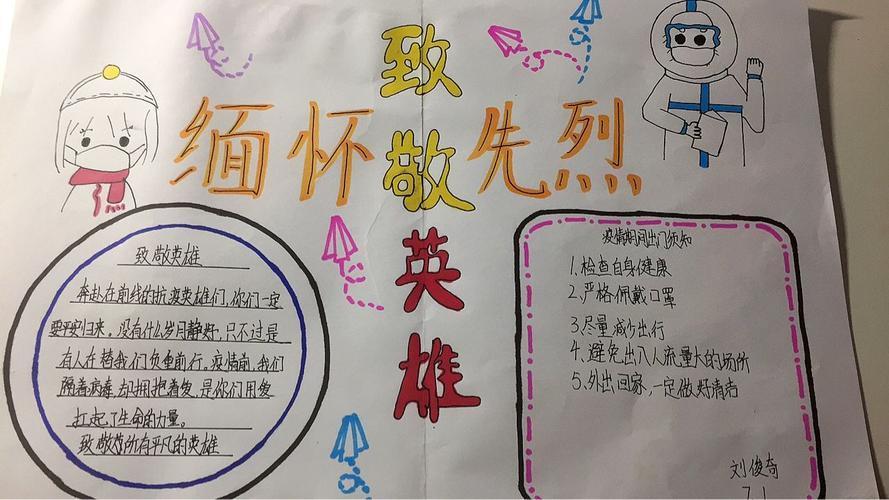 缅怀先烈
致敬英雄
致敬英雄
奔赴在前线的抗疫英雄们,你们一定
要平安归来。没有什么岁月静好,只不过是
有人在替我们负重前行。疫情前,我们
隔着病毒,却拥抱着爱,是你们用爱
扛起了生命的力量。
致敬所有平凡的英雄
疫情期间出门须知
1.检查自身健康
2.严格佩戴口罩
3.尽量减少出行
4.避免出入人流量大的场所
5.外出回家,一定做好清洁
刘俊奇
7.1